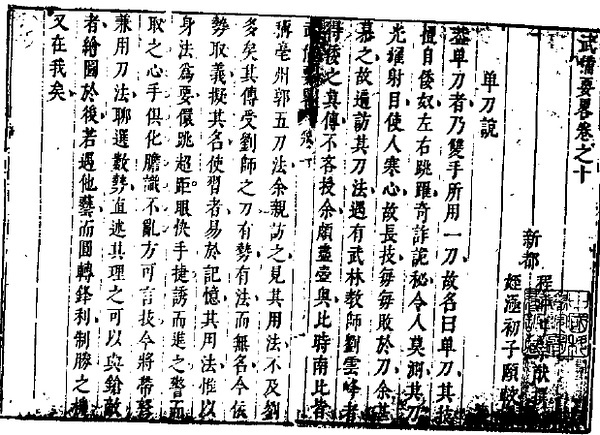 武備要畧卷之十
新都
程猷撰
姪涵初子頤校
单刀說
盖单刀者乃雙手所用一刀故名曰单刀其技
擅自倭奴左右跳躍奇詐詭秘令人莫測其刀
光耀射目使人寒心故長技每每敗於刀余甚
慕之故遍訪其刀法遇有武林教師劉雲峰者
得倭之真傳不吝授余頗盡壼奥比時南北皆
武備要畧
稱亳州郭五刀法余親訪之見其用法不及劉
多矣其傳受劉師之刀有勢有法而無名今依
勢取義擬其名使習者易於記憶其用法惟以
身法為要儇跳超距眼快手捷誘而進之驚而
取之心手俱化膽識不亂方可言技今將
兼用刀法聊選數勢直述其理之可以與鎗敵
者繪圖於後若遇他藝而圓轉鋒利制勝之機
又在我矣